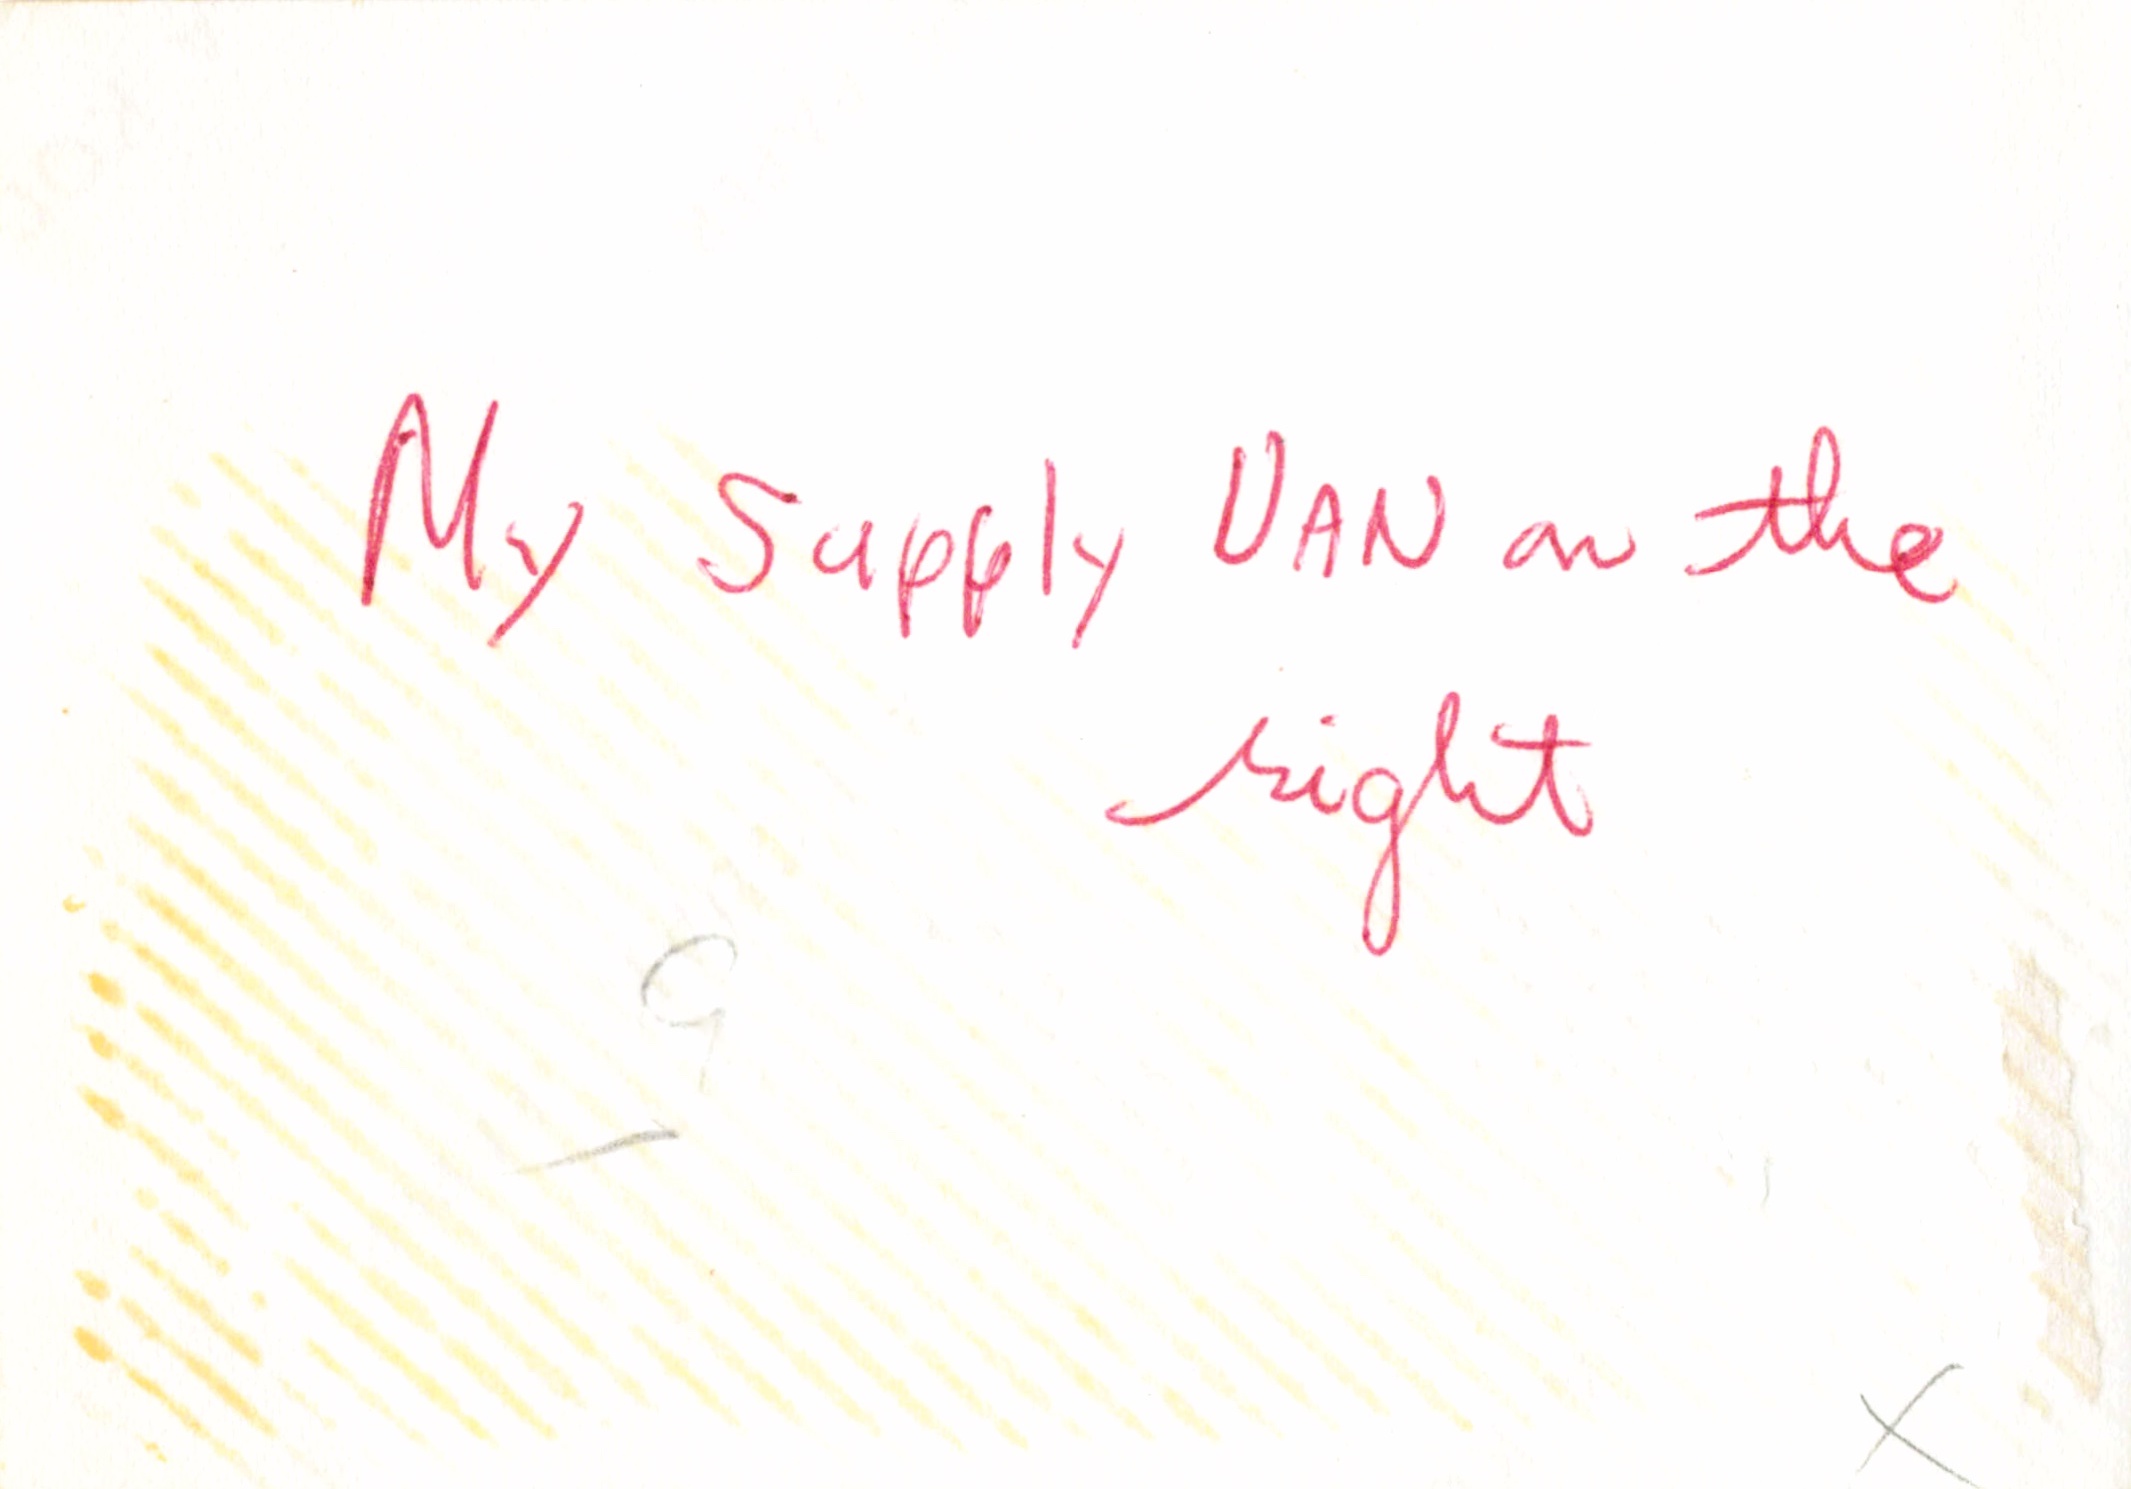 My Supply VAN on the
right
9
X